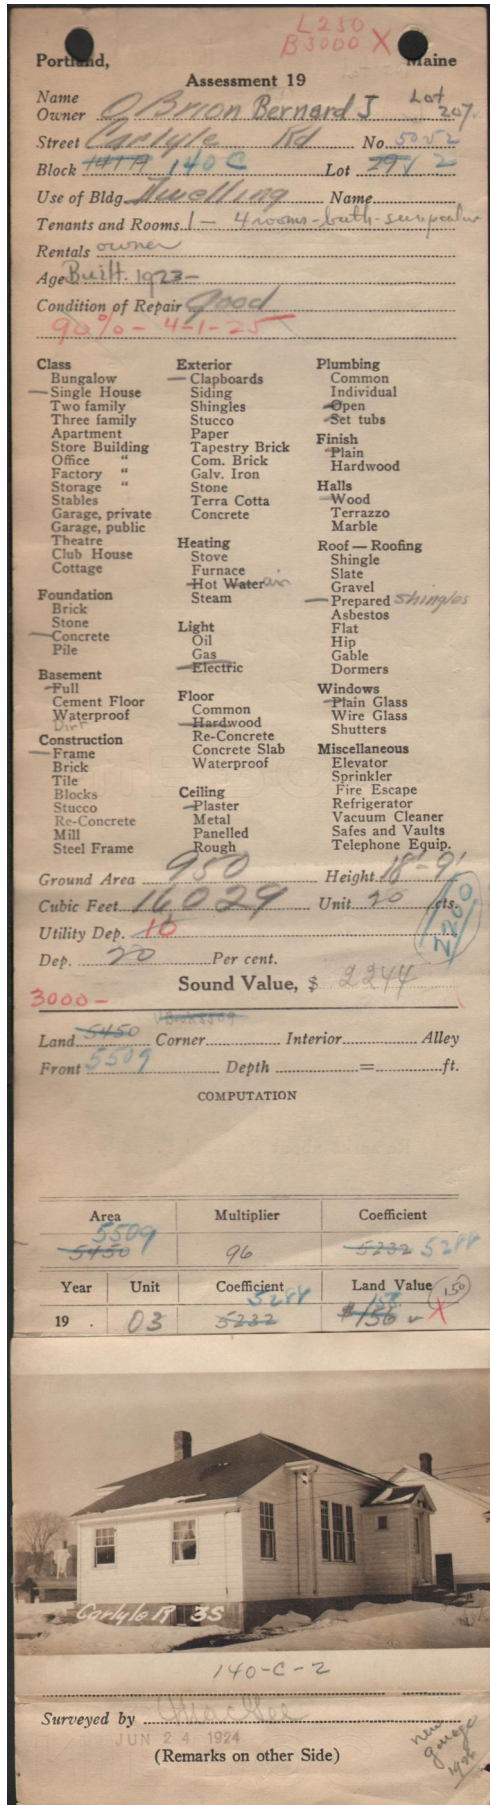 L 250
B 3000 X
Portland, Maine
Assessment 19
Name
Owner O'Brion Bernard J Lot 207
Street Carlyle Rd No. 50-52
Block 141 A 140 C Lot 29 2
Use of Bldg. Dwelling Name
Tenants and Rooms 1 - 4 rooms - bath - sunparlor
Rentals owner
Age Built. 1923 -
Condition of Repair good
90% - 4-1-25
Class
Bungalow
Single House
Two family
Three family
Apartment
Store Building
Office "
Factory "
Storage "
Stables
Garage, private
Garage, public
Theatre
Club House
Cottage
Foundation
Brick
Stone
Concrete
Pile
Basement
Full
Cement Floor
Waterproof
Dirt
Construction
Frame
Brick
Tile
Blocks
Stucco
Re-Concrete
Mill
Steel Frame
Exterior
Clapboards
Siding
Shingles
Stucco
Paper
Tapestry Brick
Com. Brick
Galv. Iron
Stone
Terra Cotta
Concrete
Heating
Stove
Furnace
Hot Water air
Steam
Light
Oil
Gas
Electric
Floor
Common
Hardwood
Re-Concrete
Concrete Slab
Waterproof
Ceiling
Plaster
Metal
Panelled
Rough
Plumbing
Common
Individual
Open
Set tubs
Finish
Plain
Hardwood
Halls
Wood
Terrazzo
Marble
Roof — Roofing
Shingle
Slate
Gravel
Prepared shingles
Asbestos
Flat
Hip
Gable
Dormers
Windows
Plain Glass
Wire Glass
Shutters
Miscellaneous
Elevator
Sprinkler
Fire Escape
Refrigerator
Vacuum Cleaner
Safes and Vaults
Telephone Equip.
Ground Area 950 Height 18'-9'
Cubic Feet 16029 Unit 20 cts.
2200
Utility Dep. 10
Dep. 20 Per cent.
Sound Value, $ 2244
3000 -
Land 5450 Corner Interior Alley
Front 5509 Depth = ft.
COMPUTATION
Area Multiplier Coefficient
5509
5450 96 5232 5288
Year Unit Coefficient Land Value 150
5288
19 . 03 5232 $ 156 X
Carlyle R 3S
140-C-2
Surveyed by MacGee
JUN 24 1924
(Remarks on other Side)
new
garage
1926